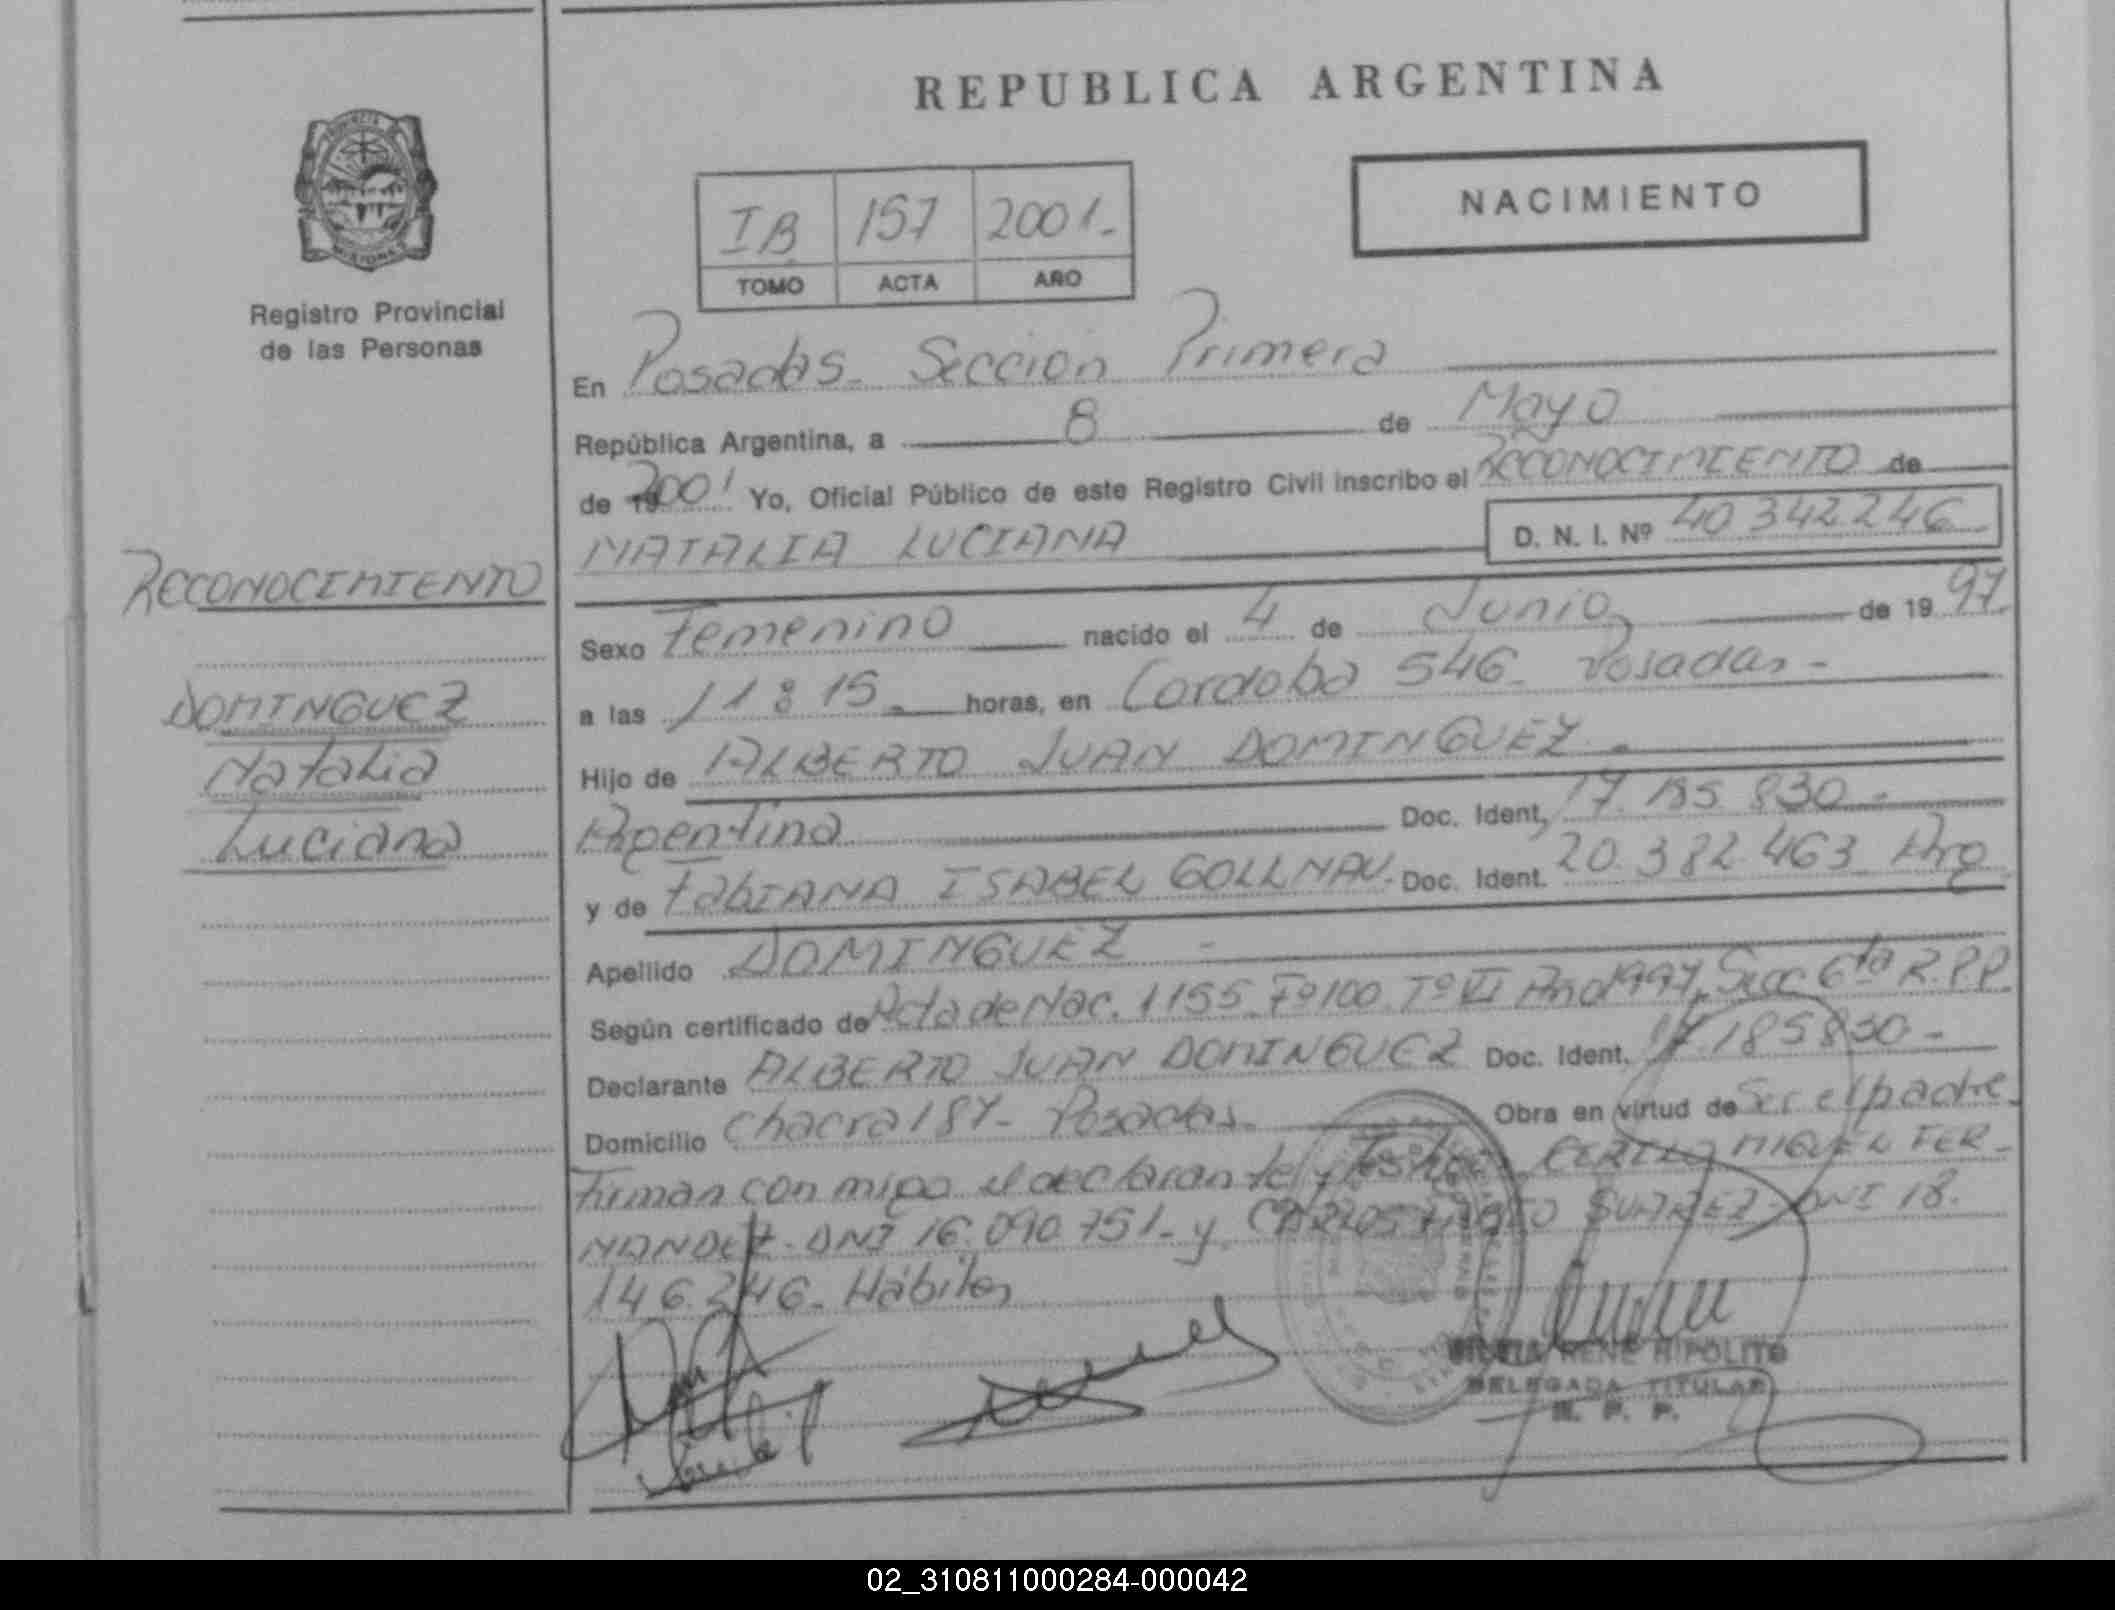 REPUBLICA ARGENTINA
NACIMIENTO
IB 157 2001.-
TOMO ACTA AÑO
Registro Provincial
de las Personas
En Posadas. Seccion Primera
República Argentina, a 8 de Mayo
de 2001 Yo, Oficial Público de este Registro Civil inscribo el RECONOCIMIENTO de
NATALIA LUCIANA D. N. I. Nº 40 342 246
RECONOCIMIENTO
DOMINGUEZ
Natalia
Luciana
Sexo Femenino nacido el 4 de Junio de 19 97.
a las 11:15 horas, en Cordoba 546 - Posadas -
Hijo de ALBERTO JUAN DOMINGUEZ -
Argentino Doc. Ident, 17 185 830 -
y de FabIANA ISABEL GOLLNAU. Doc. Ident. 20 382 463 Arg
Apellido DOMINGUEZ -
Según certificado de Acta de Nac. 1155 Fº 100 Tº VI Año 1997. Secc 6ta R.P.P.
Declarante ALBERTO JUAN DOMINGUEZ Doc. Ident. 17.185830 -
Domicilio Chacra 187 - Posadas. Obra en virtud de Ser el padre.
Firman con migo el declarante y Testigos MIGUEL FER-
NANDEZ - DNI 16.090.751 - y SUAREZ - DNI 18.
146.246 - Hábiles
RENE HIPOLITO
DELEGADA TITULAR
R. P. P.
02_310811000284-000042